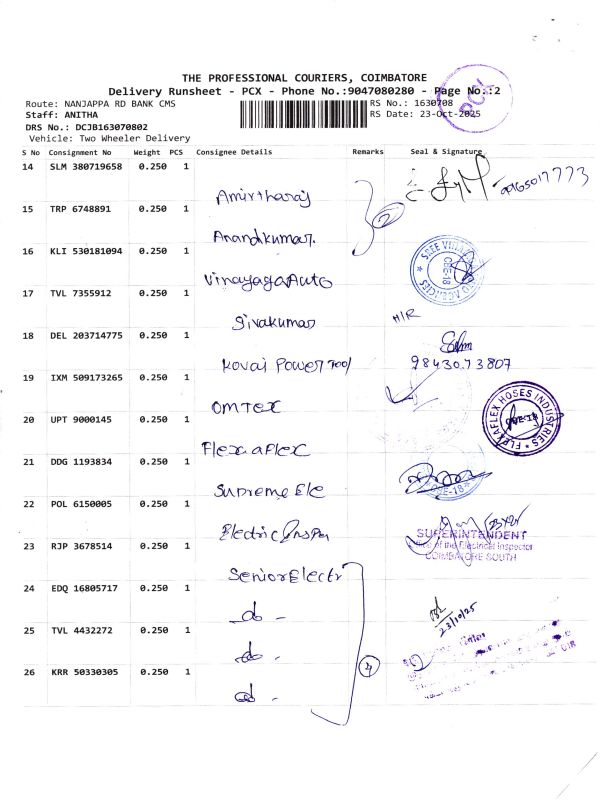 THE PROFESSIONAL COURIERS, COIMBATORE
Delivery Runsheet - PCX - Phone No.:9047080280 - Page No.:2
PCX
Route: NANJAPPA RD BANK CMS
RS No.: 1630708
Staff: ANITHA
RS Date: 23-Oct-2025
DRS No.: DCJB163070802
Vehicle: Two Wheeler Delivery
S No Consignment No Weight PCS Consignee Details Remarks Seal & Signature
14 SLM 380719658 0.250 1
Amirtharaj
15 TRP 6748891 0.250 1
2
Anandkumar.
16 KLI 530181094 0.250 1
VinayagaAuto
CBE-18
17 TVL 7355912 0.250 1
Sivakumar
H/R
18 DEL 203714775 0.250 1
Kovai Power Tool
9843073807
19 IXM 509173265 0.250 1
OMTEX
20 UPT 9000145 0.250 1
FLEXAFLEX HOSES INDUSTRIES
CBE-18
FlexaFlex
21 DDG 1193834 0.250 1
Supreme Ele
CBE-18
22 POL 6150005 0.250 1
Electric Inspe
SUPERINTENDENT
Office of the Electrical Inspector
COIMBATORE SOUTH
23 RJP 3678514 0.250 1
Senior Electr
24 EDQ 16805717 0.250 1
do -
23/10/25
25 TVL 4432272 0.250 1
do -
26 KRR 50330305 0.250 1
4
do -